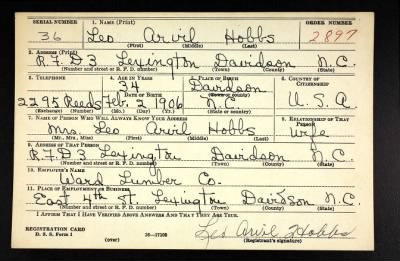 SERIAL NUMBER 1. NAME (Print) ORDER NUMBER
36 Leo Arvil Hobbs 2897
(First) (Middle) (Last)
2. ADDRESS (Print)
R.F.D 3 Lexington Davidson N.C.
(Number and street or R. F. D. number) (Town) (County) (State)
3. TELEPHONE 4. AGE IN YEARS 5. PLACE OF BIRTH 6. COUNTRY OF CITIZENSHIP
34 Davidson
DATE OF BIRTH (Town or county)
2295 Reeds Feb. 2 1906 N.C. U.S.A
(Exchange) (Number) (Mo.) (Day) (Yr.) (State or country)
7. NAME OF PERSON WHO WILL ALWAYS KNOW YOUR ADDRESS 8. RELATIONSHIP OF THAT PERSON
Mrs. Leo Arvil Hobbs Wife
(Mr., Mrs., Miss) (First) (Middle) (Last)
9. ADDRESS OF THAT PERSON
R.F.D 3 Lexington Davidson N.C.
(Number and street or R. F. D. number) (Town) (County) (State)
10. EMPLOYER'S NAME
Ward Lumber Co.
11. PLACE OF EMPLOYMENT OR BUSINESS
East 4th St. Lexington Davidson N.C.
(Number and street or R. F. D. number) (Town) (County) (State)
I AFFIRM THAT I HAVE VERIFIED ABOVE ANSWERS AND THAT THEY ARE TRUE.
REGISTRATION CARD Leo Arvil Hobbs
D. S. S. Form 1 (over) 16—17105 (Registrant's signature)